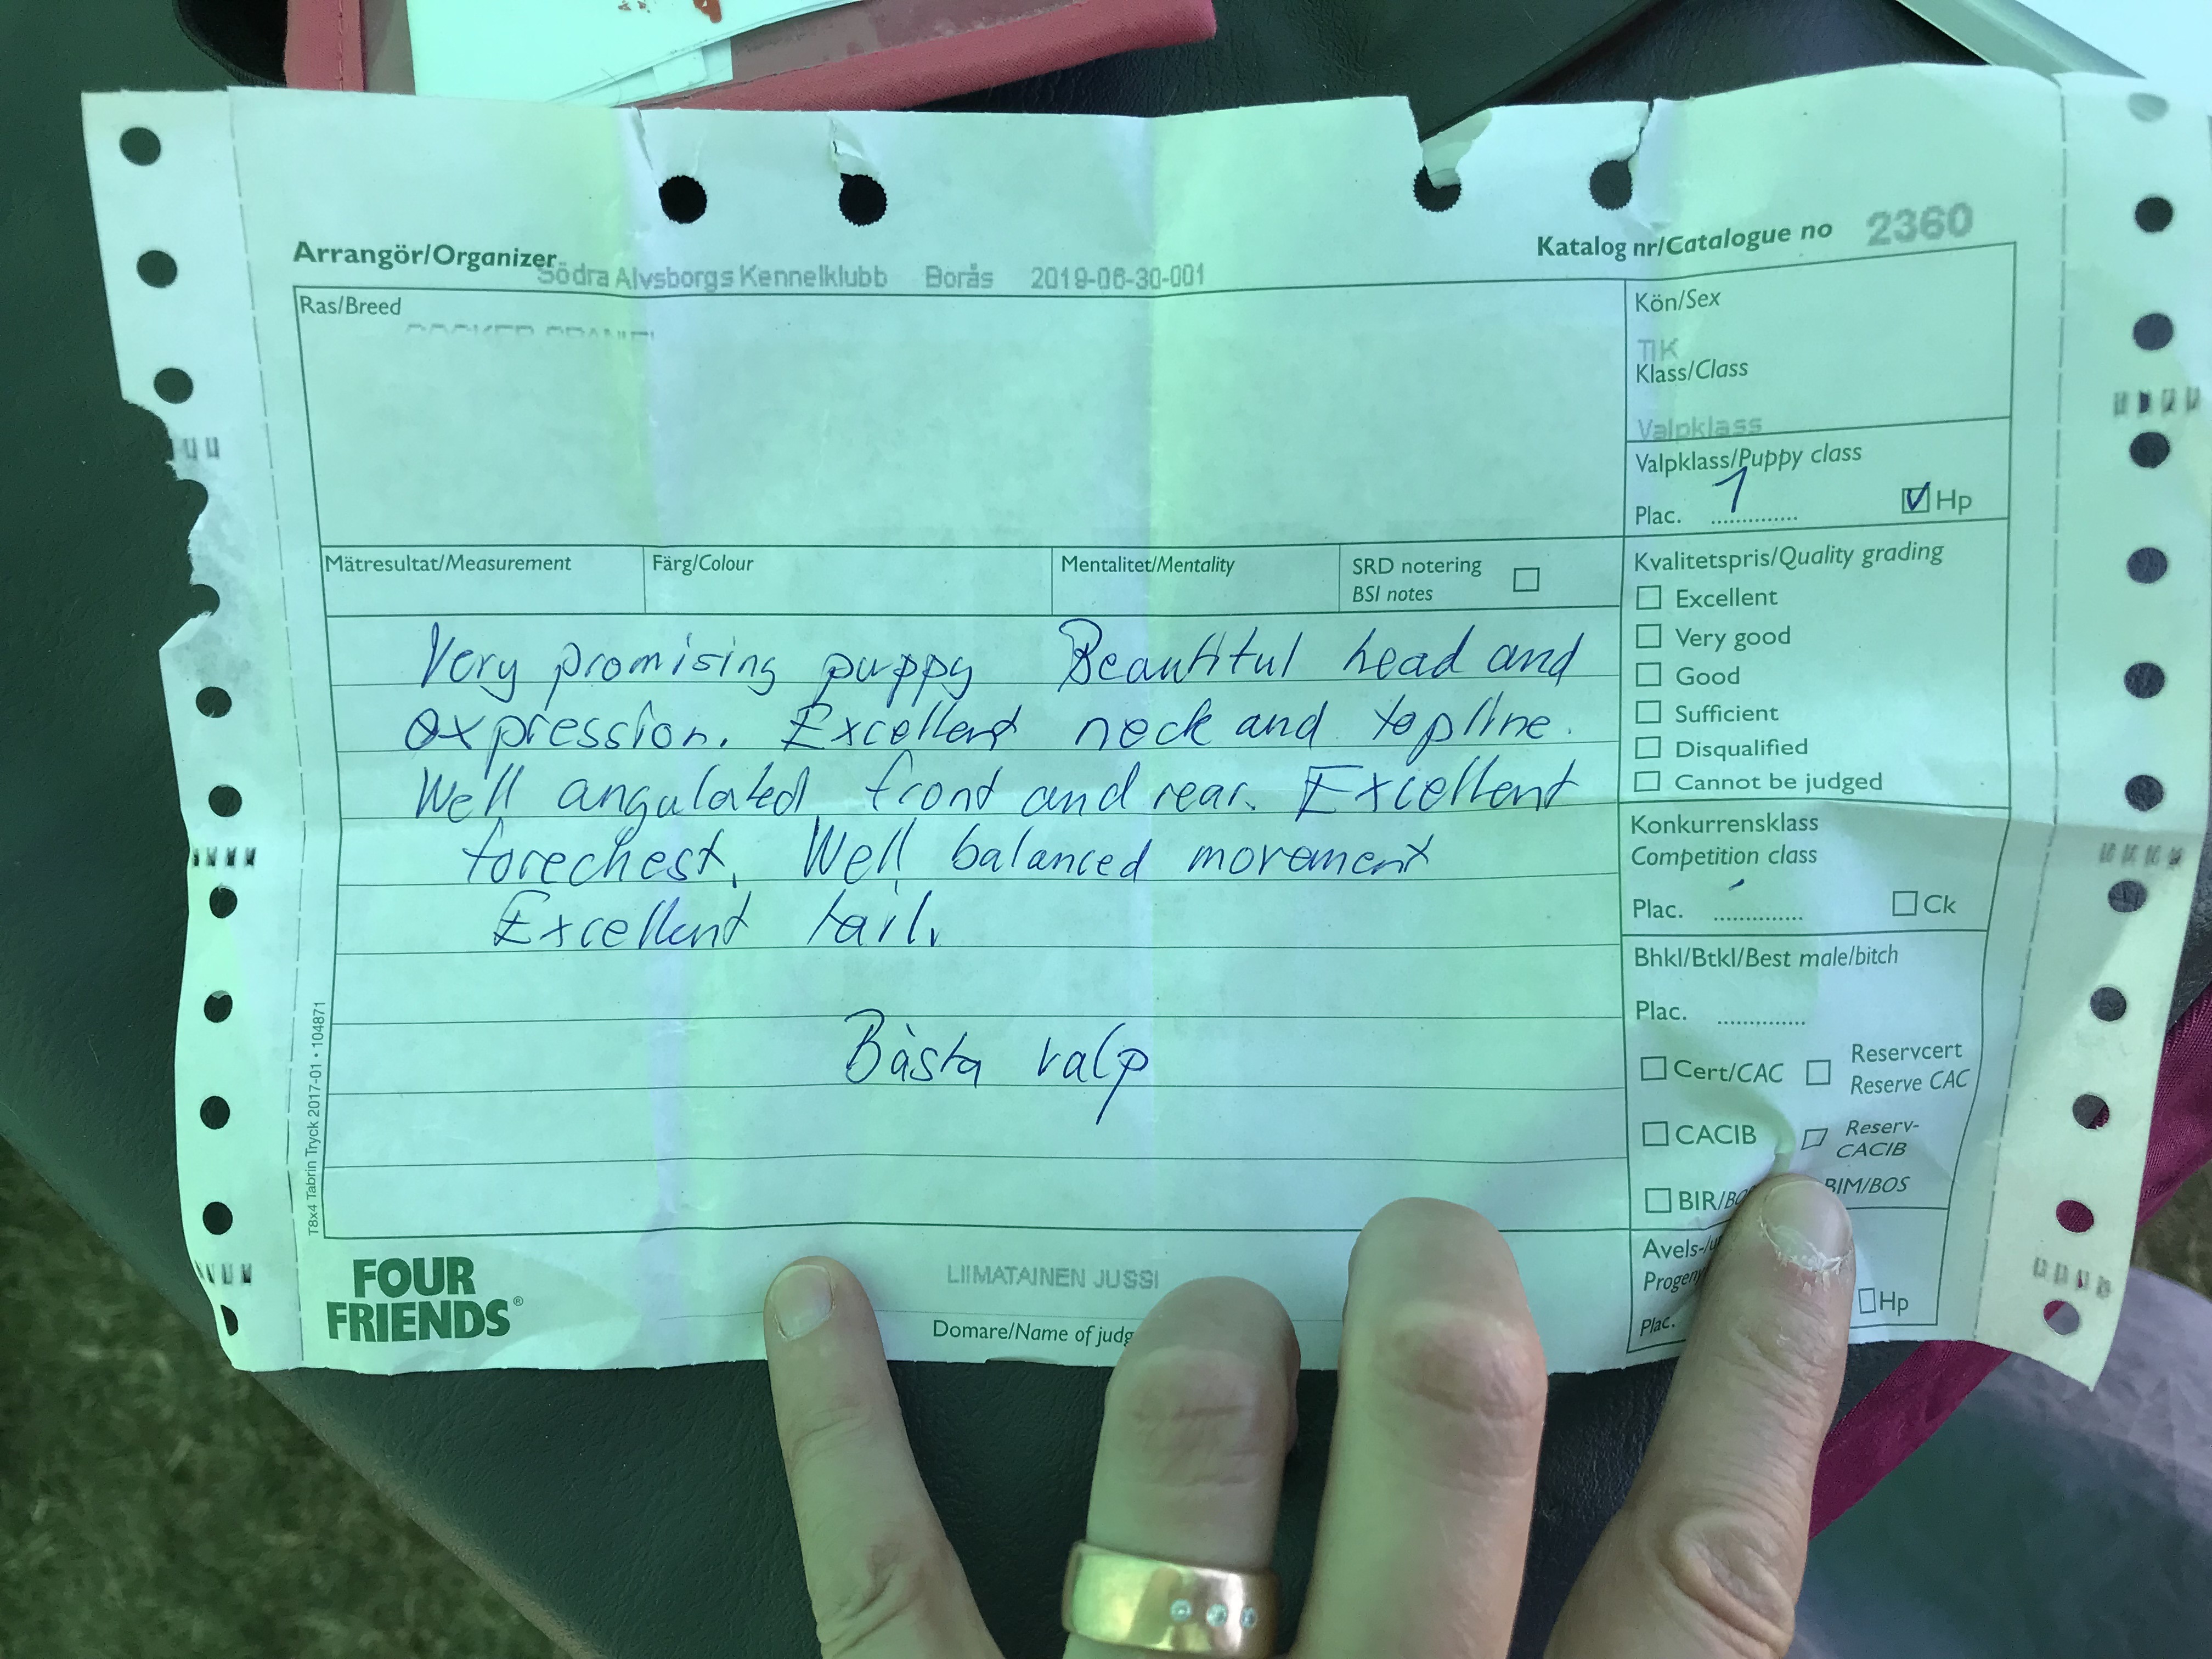 Arrangör/Organizer
Södra Alvsborgs Kennelklubb Borås 2019-06-30-001
Katalog nr/Catalogue no 2360
Ras/Breed
COCKER SPANIEL
Kön/Sex
TIK
Klass/Class
Valpklass
Valpklass/Puppy class
Plac. 1 Hp
Mätresultat/Measurement
Färg/Colour
Mentalitet/Mentality
SRD notering
BSI notes
Very promising puppy Beautiful head and
expression. Excellent neck and topline.
Well angulated front and rear. Excellent
forechest. Well balanced movement
Excellent tail.
Bästa valp
Kvalitetspris/Quality grading
Excellent
Very good
Good
Sufficient
Disqualified
Cannot be judged
Konkurrensklass
Competition class
Plac. Ck
Bhkl/Btkl/Best male/bitch
Plac.
Cert/CAC
Reservcert
Reserve CAC
CACIB
Reserv-
CACIB
BIR/
BIM/BOS
Avels-/
Progeny
Plac. Hp
T8x4 Tabrin Tryck 2017-01 • 104871
FOUR
FRIENDS®
LIIMATAINEN JUSSI
Domare/Name of judg